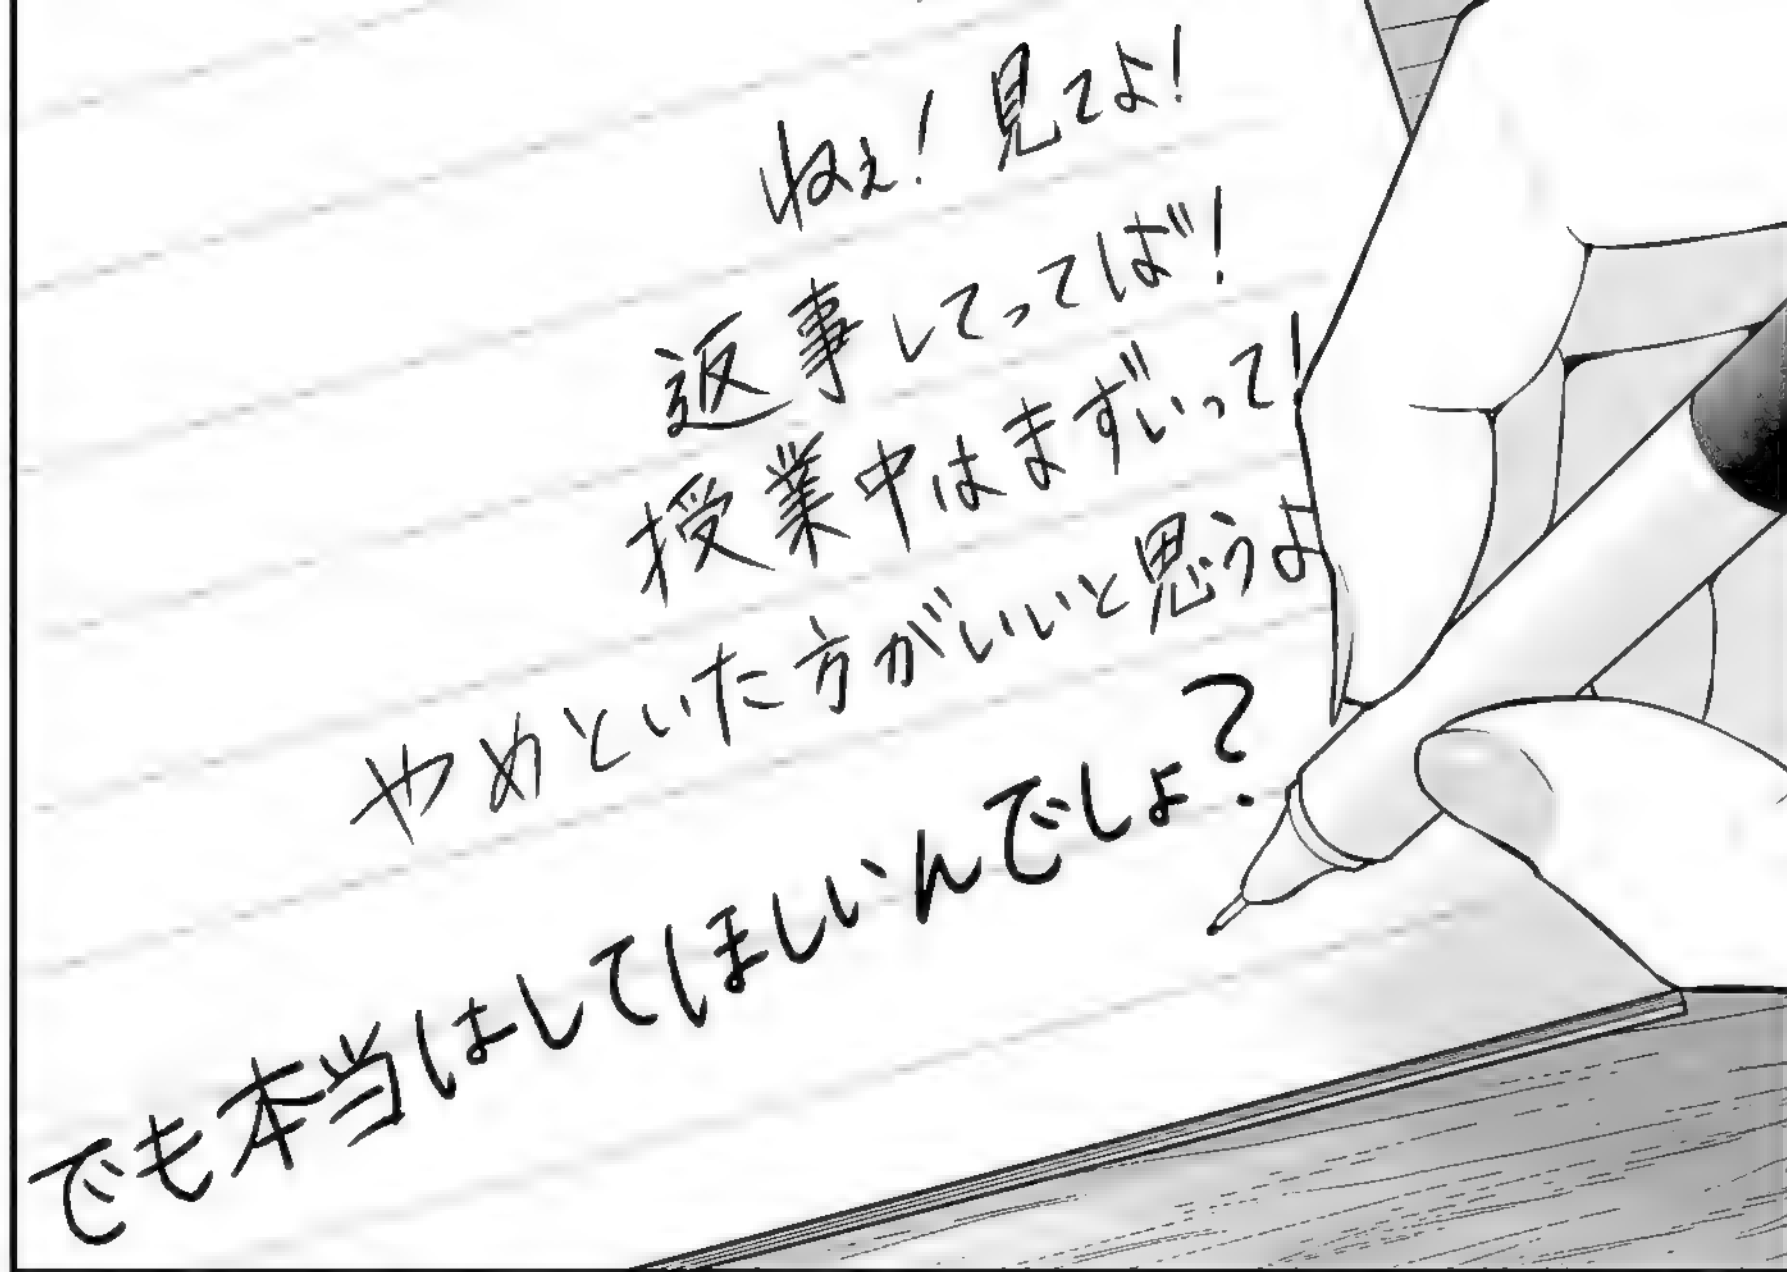 ねぇ！見てよ！
返事してってば！
授業中はまずいって！
やめといた方がいいと思うよ
でも本当はしてほしいんでしょ？